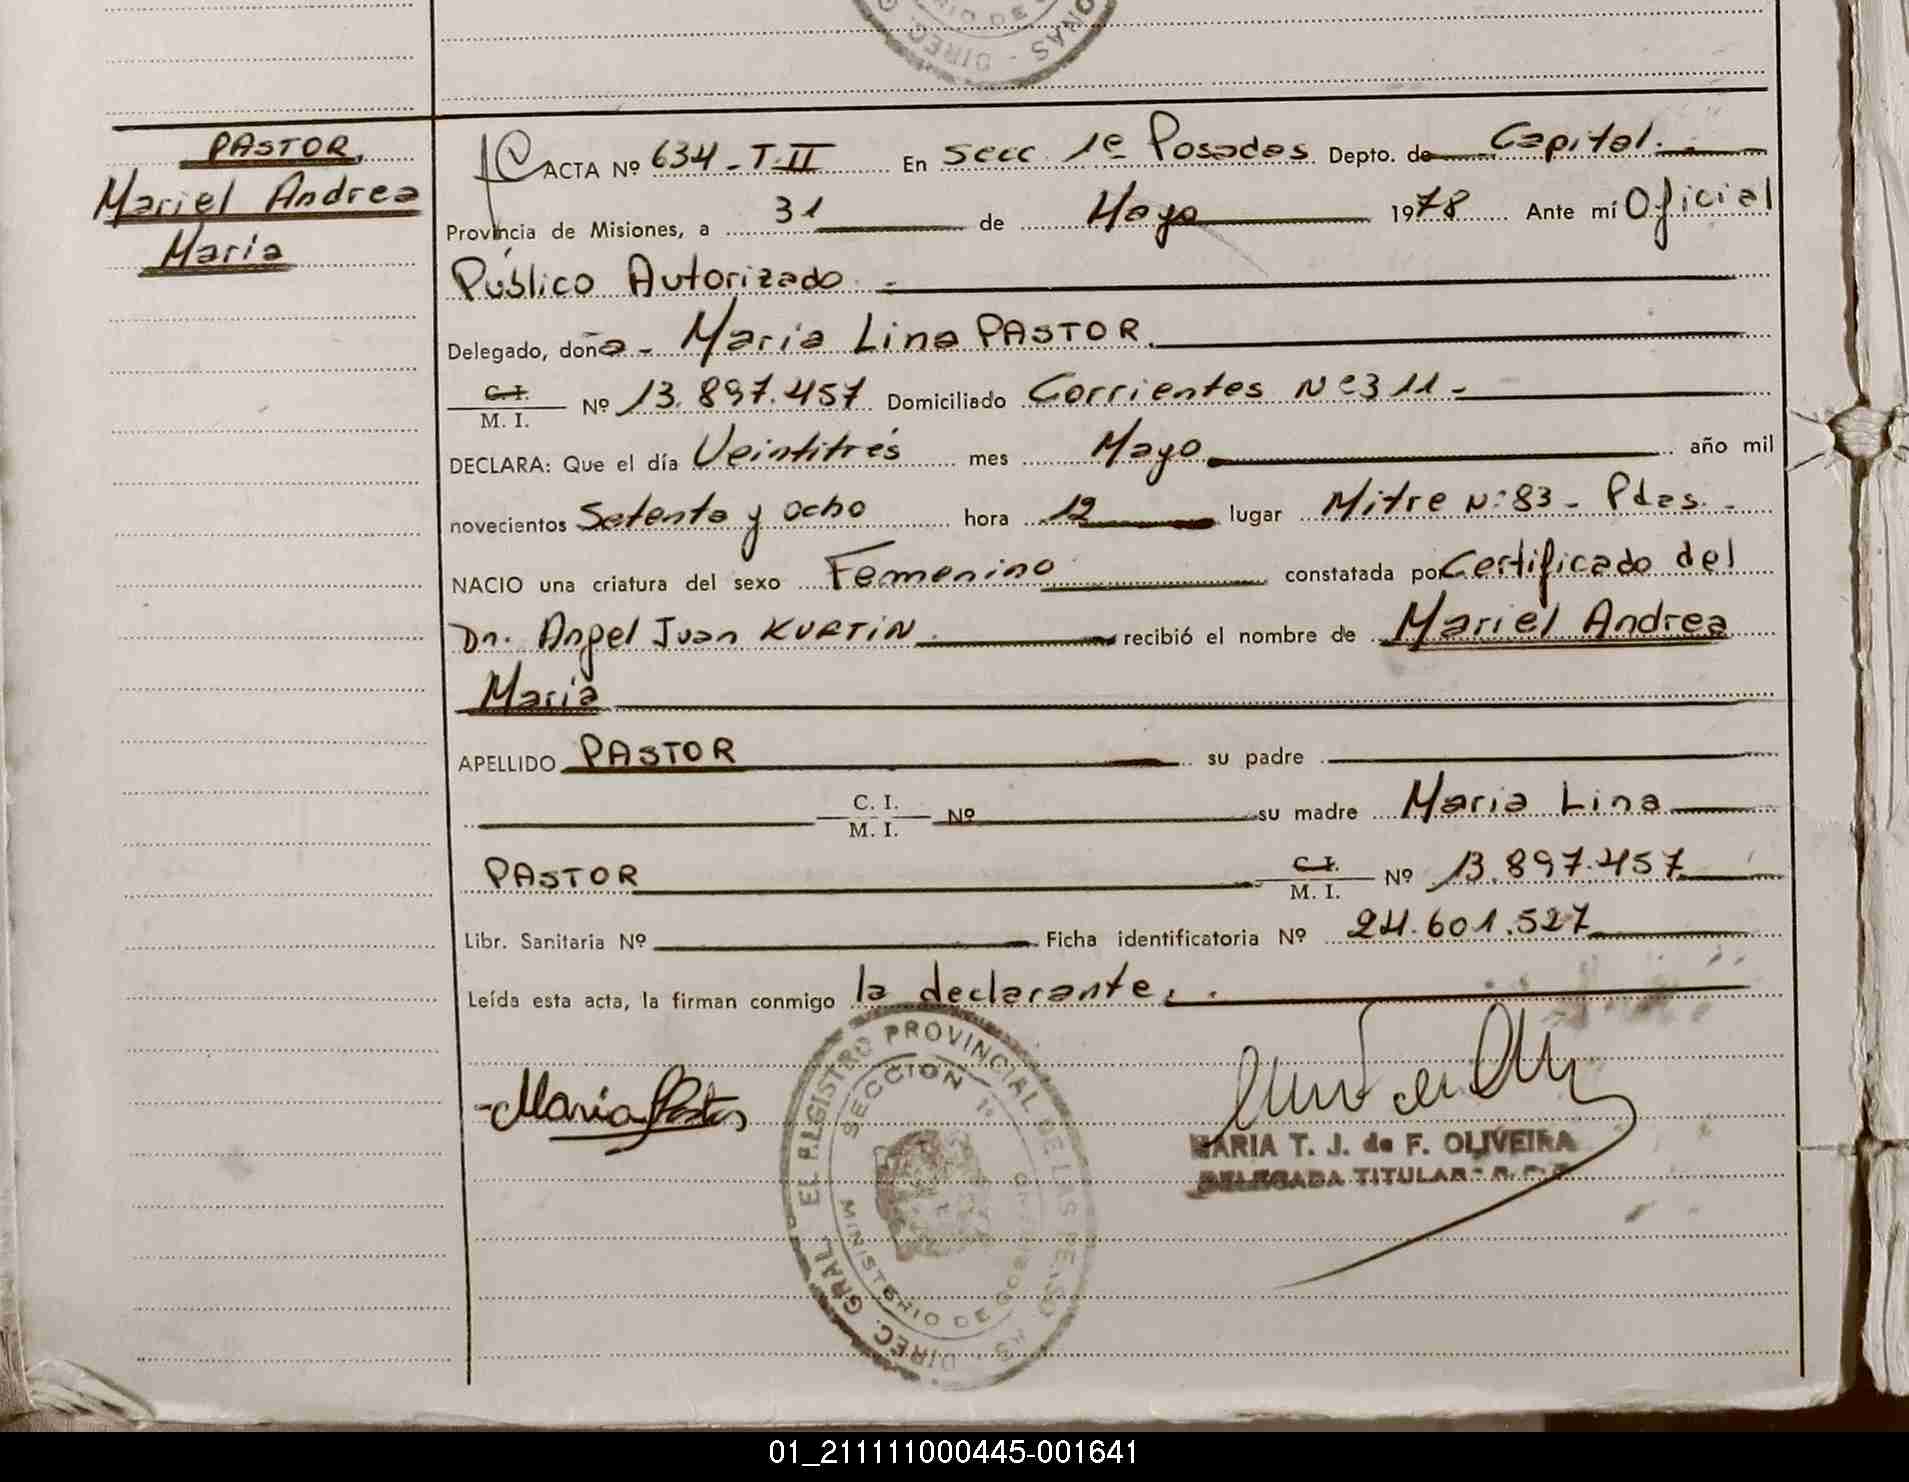 PASTOR,
Mariel Andrea
Maria
ACTA Nº 634 - T. II En Secc 1º Posadas Depto. de Capital.-
Provincia de Misiones, a 31 de Mayo 1978 Ante mí Oficial
Público Autorizado.-
Delegado, doña - Maria Lina PASTOR.
C. I.
M. I. Nº 13.897.457 Domiciliado Corrientes Nº 311-
DECLARA: Que el día Veintitrés mes Mayo año mil
novecientos Setenta y ocho hora 12 lugar Mitre Nº 83 - Pdas.-
NACIO una criatura del sexo Femenino constatada por Certificado del
Dr. Angel Juan KURTIN. recibió el nombre de Mariel Andrea
Maria
APELLIDO PASTOR su padre
C. I.
M. I. Nº su madre Maria Lina
PASTOR C. I.
M. I. Nº 13.897.457
Libr. Sanitaria Nº Ficha identificatoria Nº 24.601.527
Leída esta acta, la firman conmigo la declarante.
Maria Pastor
MARIA T. J. de F. OLIVEIRA
DELEGADA TITULAR
DIREC. GRAL. REGISTRO PROVINCIAL DE LAS PERSONAS
SECCION 1º
MINISTERIO DE GOBIERNO
01_211111000445-001641